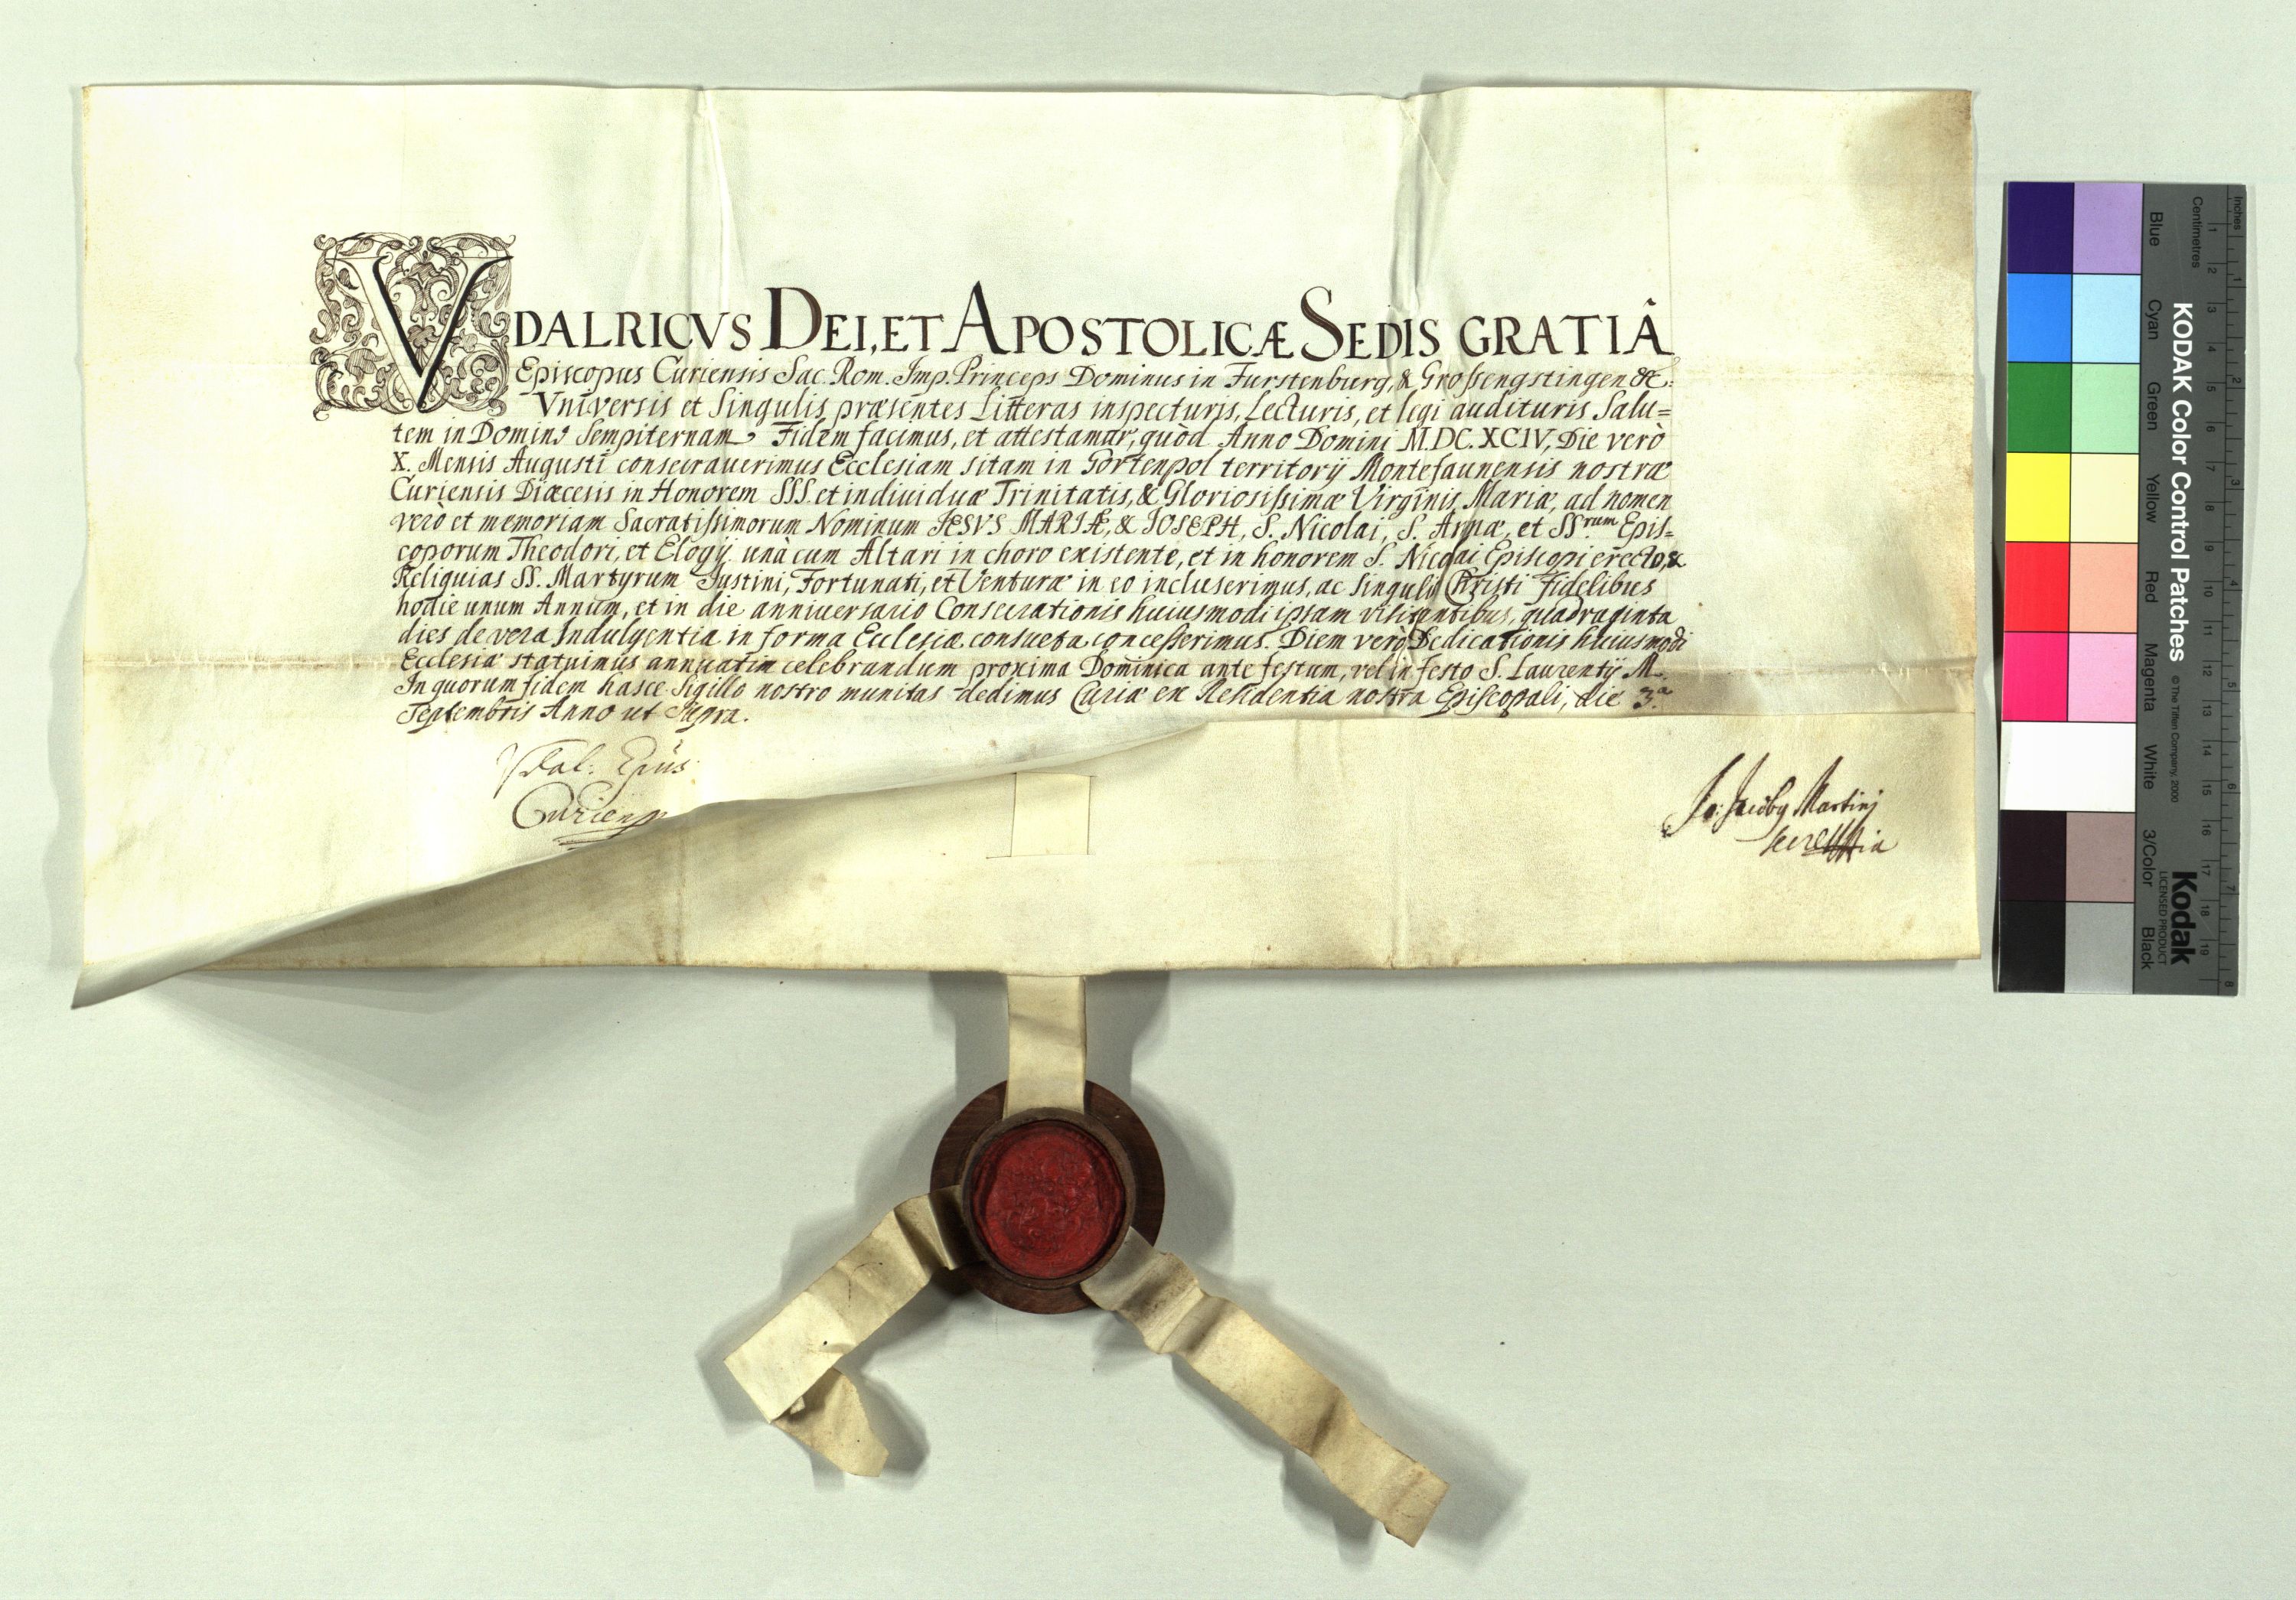 VDALRICVS DEI, ET APOSTOLICÆ SEDIS GRATIÂ
Episcopus Curiensis Sac. Rom. Imp. Princeps Dominus in Furstenburg, & Grossengstingen &c:
Vniversis et Singulis, præsentes Litteras inspecturis, Lecturis, et legi audituris Salu=
tem in Domino Sempiternam. Fidem facimus, et attestamur, quòd Anno Domini M.DC.XCIV, Die verò
X. Mensis Augusti consecrauerimus Ecclesiam sitam in Portenpol territorij Montefaunensis nostræ
Curiensis Diœcesis in Honorem SSS. et indiuiduæ Trinitatis, & Gloriosissimæ Virginis Mariæ, ad nomen
verò et memoriam Sacratissimorum Nominum JESVS MARIÆ, & JOSEPH, S. Nicolai, S. Annæ, et SS.rum Epis=
coporum Theodori, et Elogij unà cum Altari in choro existente, et in honorem S. Nicolai Episcopi erecto, &
Reliquias SS. Martyrum Justini, Fortunati, et Venturæ in eo incluserimus, ac singulis Christi Fidelibus
hodie unum Annum, et in die anniuersario Consecrationis huiusmodi ipsam visitantibus, quadraginta
dies de vera Indulgentia in forma Ecclesiæ consueta concesserimus. Diem verò Dedicationis huiusmodi
Ecclesiæ statuimus annuatim celebrandum proxima Dominica ante festum, vel in festo S. Laurentij M.
In quorum fidem hasce Sigillo nostro munitas dedimus Curiæ ex Residentia nostra Episcopali, die 3.a
Septembris Anno ut supra.
Vdal: Epüs
Curiens
Jo: Jacoby Martinj
KODAK Color Control Patches
© The Tiffen Company, 2000
Kodak
LICENSED PRODUCT
Inches
1 2 3 4 5 6 7 8
Centimetres
1 2 3 4 5 6 7 8 9 10 11 12 13 14 15 16 17 18 19
Blue Cyan Green Yellow Red Magenta White 3/Color Black